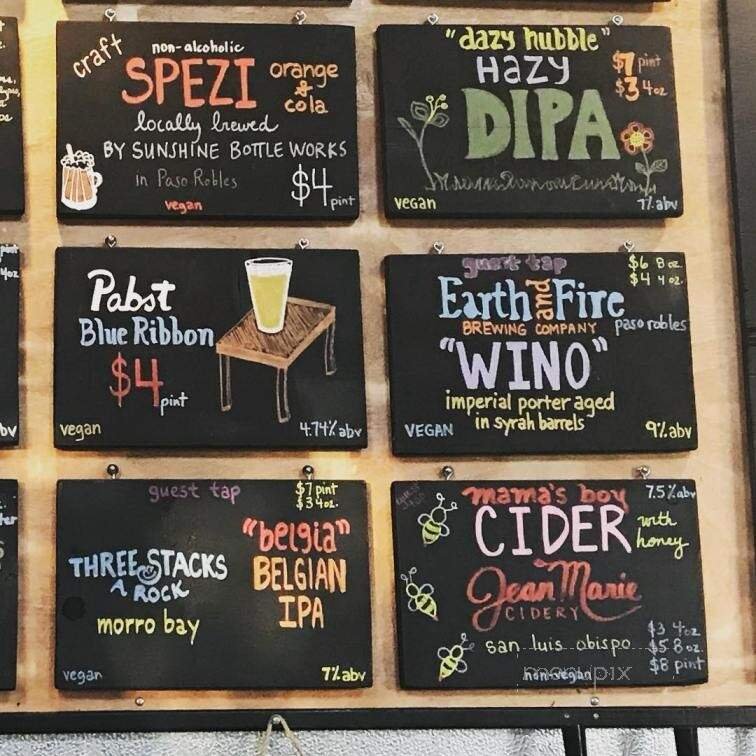 craft
non-alcoholic
SPEZI
orange
&
cola
locally brewed
BY SUNSHINE BOTTLE WORKS
in Paso Robles
$4 pint
vegan
"dazy hubble"
HAZY
DIPA
$7 pint
$3 4oz
vegan
7% abv
Pabst
Blue Ribbon
$4 pint
vegan
4.74% abv
guest tap
$6 8 oz.
$4 4 oz.
Earth and Fire
BREWING COMPANY
paso robles
"WINO"
imperial porter aged
in syrah barrels
VEGAN
9% abv
guest tap
$7 pint
$3 4oz.
THREE STACKS
& A ROCK
morro bay
"belgia"
BELGIAN
IPA
vegan
7% abv
guest tap
mama's boy
7.5% abv
CIDER
with
honey
Jean Marie
CIDERY
san luis obispo
$3 4oz
$5 8 oz
$8 pint
non-vegan
menupix